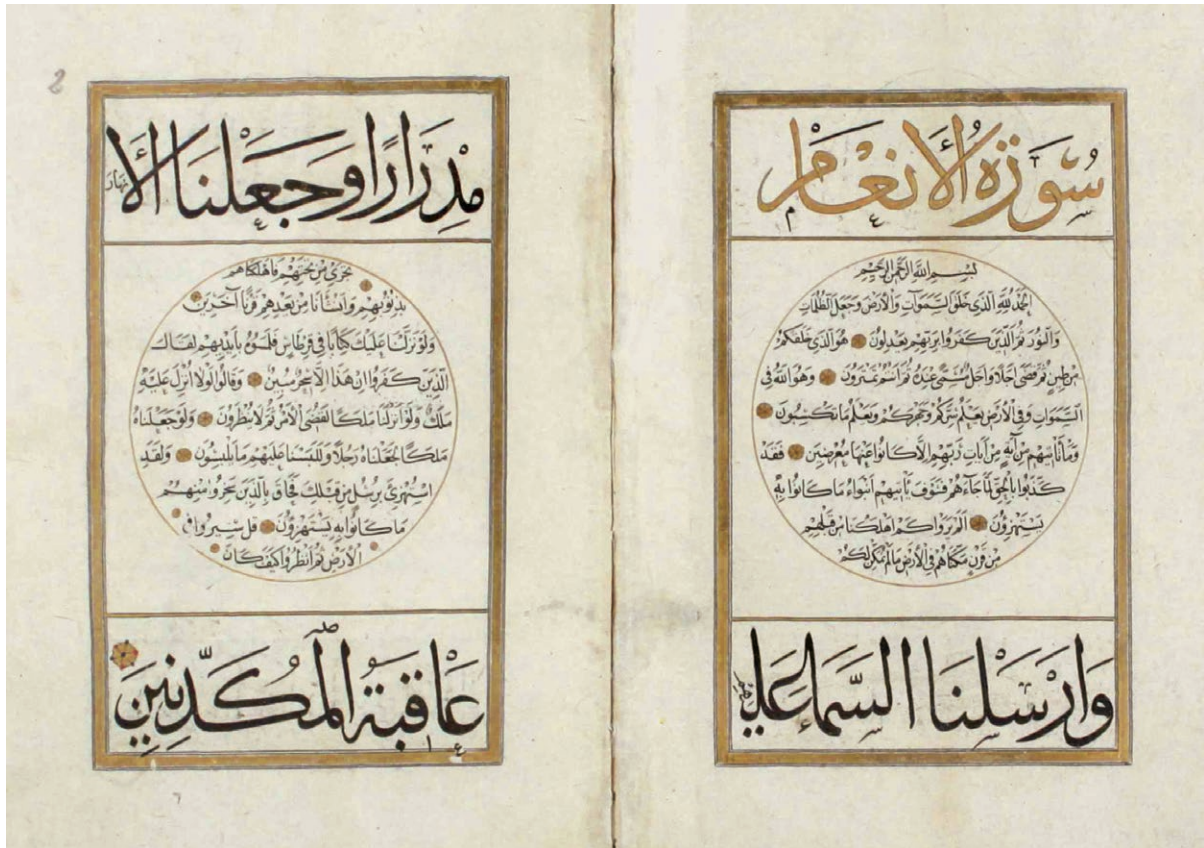 سُورَةُ الْأَنْعَامِ
بِسْمِ اللَّهِ الرَّحْمٰنِ الرَّحِيمِ
اَلْحَمْدُ لِلَّهِ الَّذِي خَلَقَ السَّمٰوَاتِ وَالْاَرْضَ وَجَعَلَ الظُّلُمَاتِ
وَالنُّورَ ثُمَّ الَّذِينَ كَفَرُوا بِرَبِّهِمْ يَعْدِلُونَ هُوَ الَّذِي خَلَقَكُمْ
مِنْ طِينٍ ثُمَّ قَضٰى اَجَلًا وَاَجَلٌ مُسَمًّى عِنْدَهُ ثُمَّ اَنْتُمْ تَمْتَرُونَ وَهُوَ اللَّهُ فِي
السَّمٰوَاتِ وَفِي الْاَرْضِ يَعْلَمُ سِرَّكُمْ وَجَهْرَكُمْ وَيَعْلَمُ مَا تَكْسِبُونَ
وَمَا تَأْتِيهِمْ مِنْ آيَةٍ مِنْ آيَاتِ رَبِّهِمْ اِلَّا كَانُوا عَنْهَا مُعْرِضِينَ فَقَدْ
كَذَّبُوا بِالْحَقِّ لَمَّا جَاءَهُمْ فَسَوْفَ يَأْتِيهِمْ اَنْبٰوءُا مَا كَانُوا بِهِ
يَسْتَهْزِؤُنَ اَلَمْ يَرَوْا كَمْ اَهْلَكْنَا مِنْ قَبْلِهِمْ
مِنْ قَرْنٍ مَكَّنَّاهُمْ فِي الْاَرْضِ مَا لَمْ نُمَكِّنْ لَكُمْ
وَاَرْسَلْنَا السَّمَاءَ عَلَيْهِمْ
2
مِدْرَارًا وَجَعَلْنَا الْأَنْهَارَ
تَجْرِي مِنْ تَحْتِهِمْ فَاَهْلَكْنَاهُمْ
بِذُنُوبِهِمْ وَاَنْشَأْنَا مِنْ بَعْدِهِمْ قَرْنًا آخَرِينَ
وَلَوْ نَزَّلْنَا عَلَيْكَ كِتَابًا فِي قِرْطَاسٍ فَلَمَسُوهُ بِأَيْدِيهِمْ لَقَالَ
الَّذِينَ كَفَرُوا اِنْ هٰذَا اِلَّا سِحْرٌ مُبِينٌ وَقَالُوا لَوْلَا اُنْزِلَ عَلَيْهِ
مَلَكٌ وَلَوْ اَنْزَلْنَا مَلَكًا لَقُضِيَ الْاَمْرُ ثُمَّ لَا يُنْظَرُونَ وَلَوْ جَعَلْنَاهُ
مَلَكًا لَجَعَلْنَاهُ رَجُلًا وَلَلَبَسْنَا عَلَيْهِمْ مَا يَلْبِسُونَ وَلَقَدِ
اسْتُهْزِئَ بِرُسُلٍ مِنْ قَبْلِكَ فَحَاقَ بِالَّذِينَ سَخِرُوا مِنْهُمْ
مَا كَانُوا بِهِ يَسْتَهْزِؤُنَ قُلْ سِيرُوا فِي
الْاَرْضِ ثُمَّ انْظُرُوا كَيْفَ كَانَ
عَاقِبَةُ الْمُكَذِّبِينَ